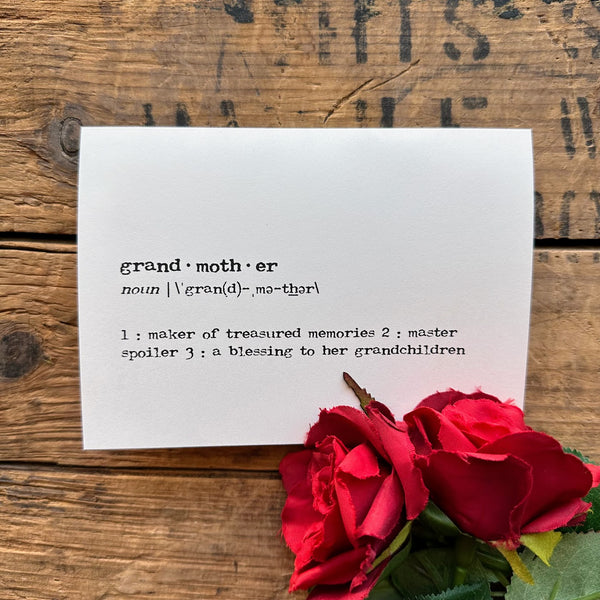 grand · moth · er
noun | \ˈgran(d)-ˌmə-t͟hər\
1 : maker of treasured memories 2 : master
spoiler 3 : a blessing to her grandchildren